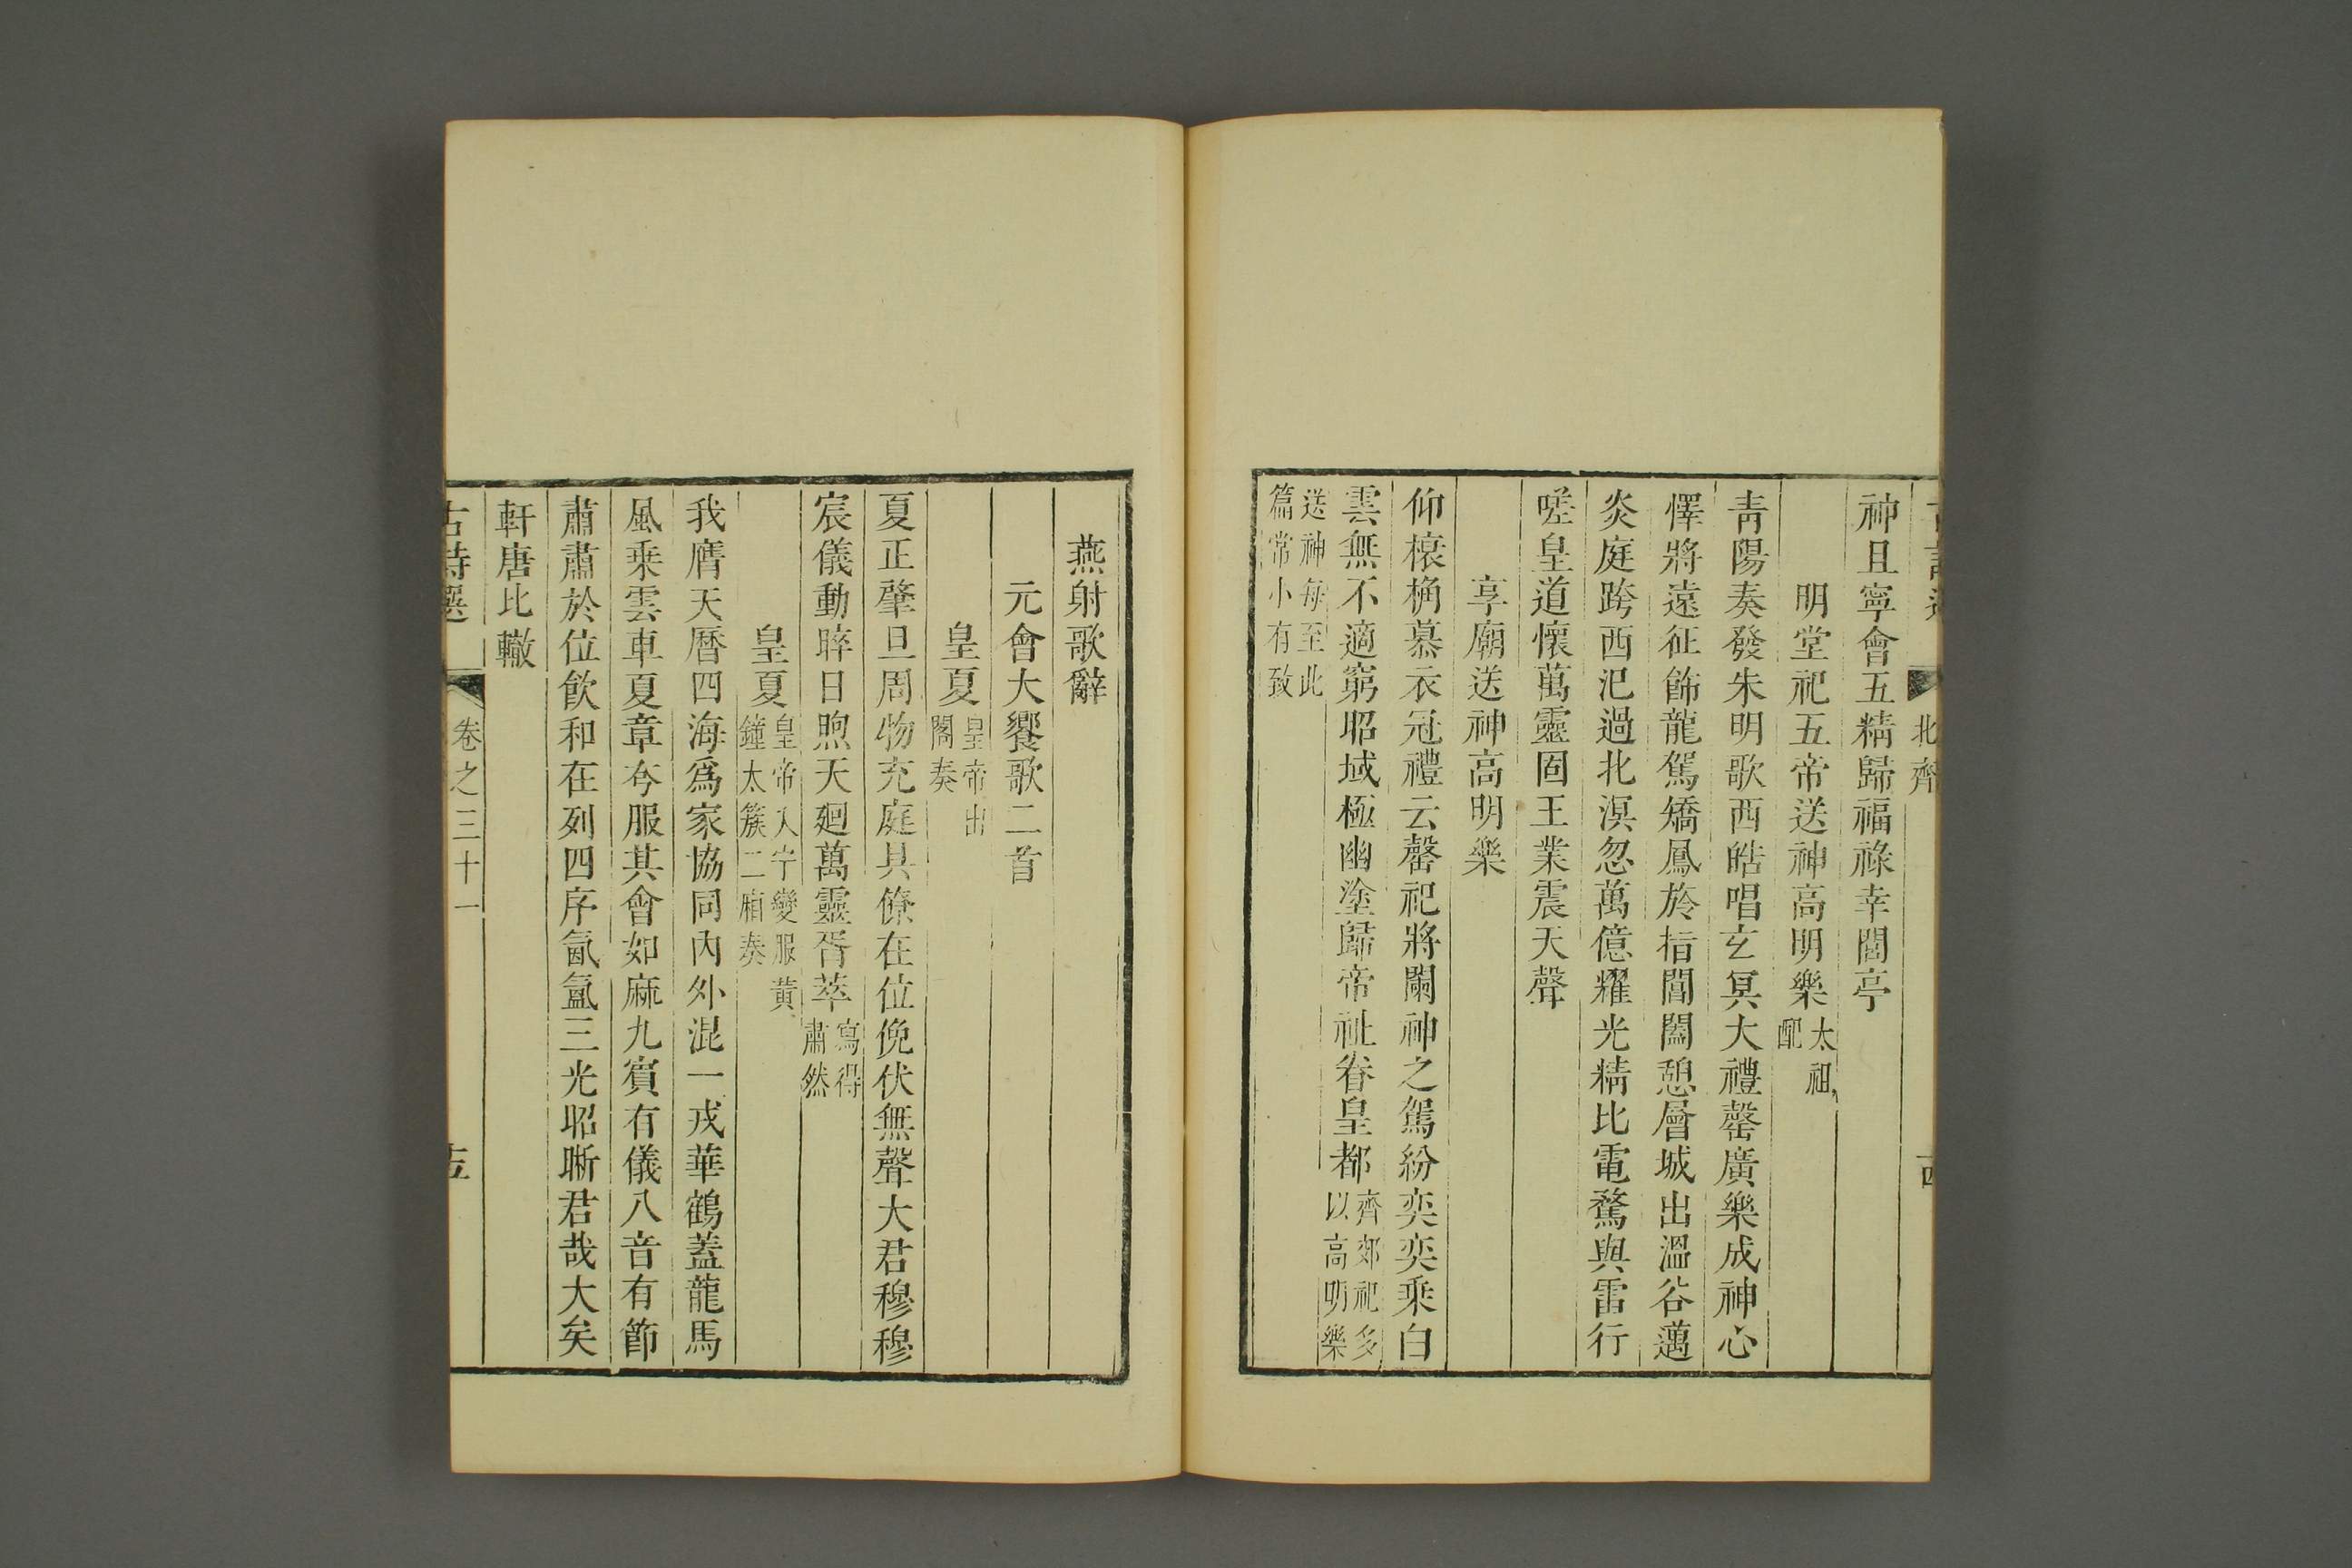 北齊
神且寧會五精歸福祿幸閻亭
明堂祀五帝送神高明樂太祖
配
青陽奏發朱明歌西皓唱玄冥大禮罄廣樂成神心
懌將遠征飾龍駕矯鳳旍指閶闔憩層城出溫谷邁
炎庭跨西汜過北溟忽萬億耀光精比電鶩與雷行
嗟皇道懷萬靈固王業震天聲
享廟送神高明樂
仰榱桷慕衣冠禮云罄祀將闌神之駕紛奕奕乘白
雲無不適窮昭域極幽塗歸帝祉眷皇都齊郊祀多
以高明樂
送神每至此
篇常小有致
燕射歌辭
元會大饗歌二首
皇夏皇帝出
閤奏
夏正肇旦周物充庭具僚在位俛伏無聲大君穆穆
宸儀動睟日煦天廻萬靈胥萃寫得
肅然
皇夏皇帝入宁變服黃
鐘太簇二廂奏
我膺天曆四海爲家協同內外混一戎華鶴蓋龍馬
風乘雲車夏章夷服其會如麻九賓有儀八音有節
肅肅於位飲和在列四序氤氳三光昭晣君哉大矣
軒唐比轍
古詩選
卷之三十一